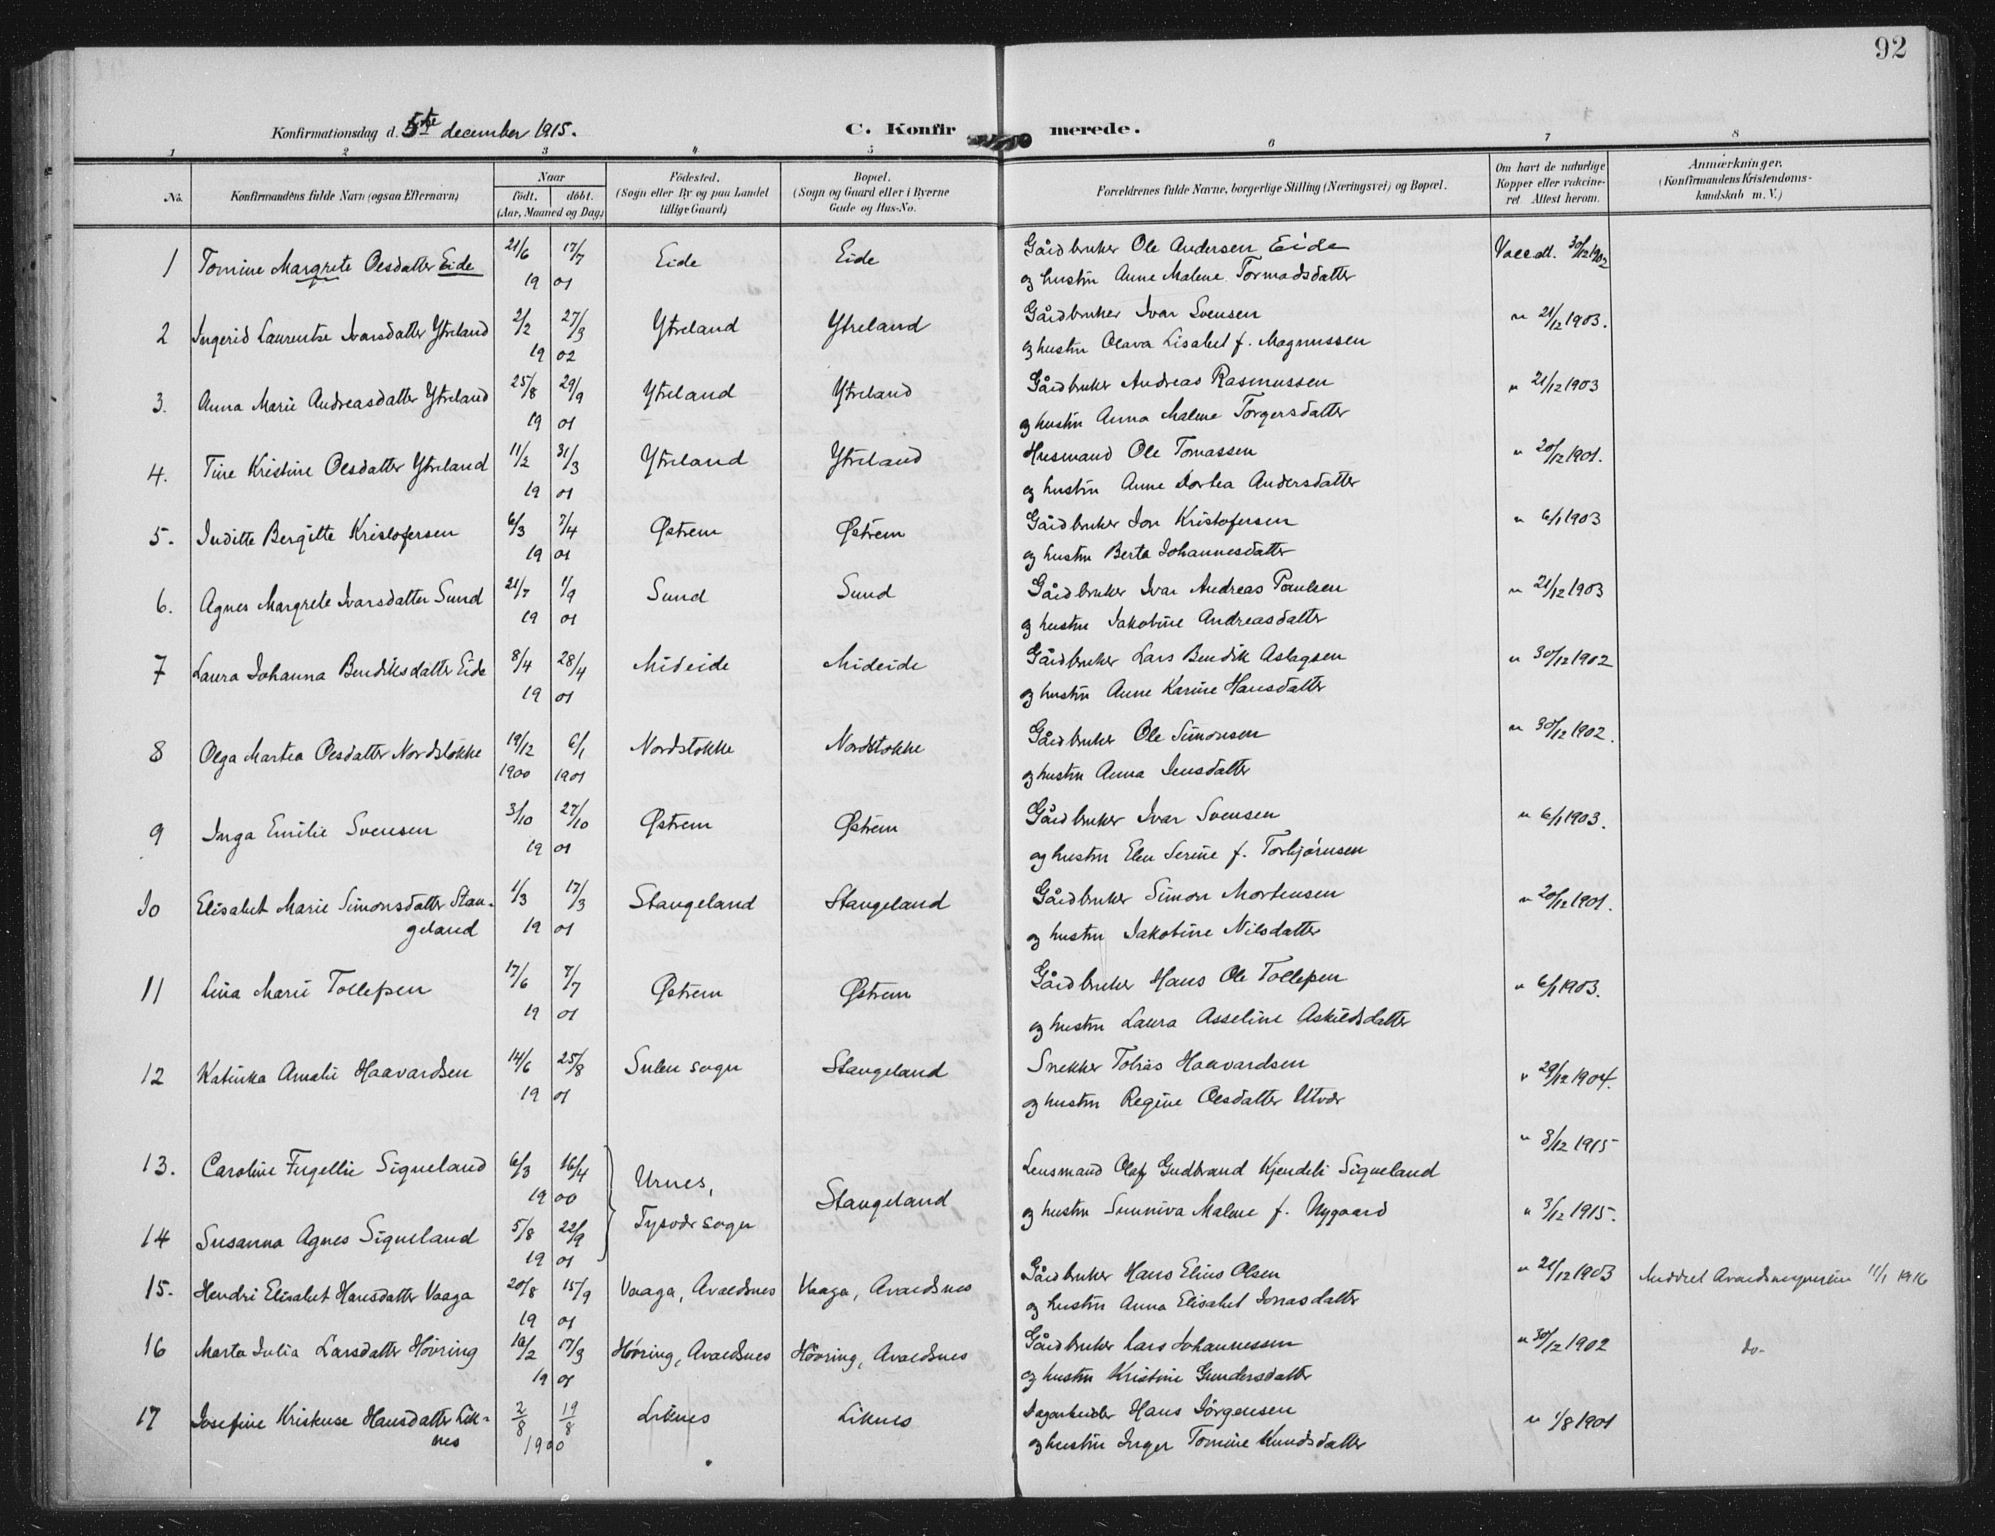 92
Konfirmationsdag d. 5te december 1915.
C. Konfirmerede.
1 2 3 4 5 6 7 8
No.
Konfirmandens fulde Navn (ogsaa Efternavn)
Naar
födt. döbt.
(Aar, Maaned og Dag)
Födested.
(Sogn eller By og paa Landet
tillige Gaard)
Bopæl.
(Sogn og Gaard eller i Byerne
Gade og Hus-No.
Forældrenes fulde Navne, borgerlige Stilling (Næringsvei) og Bopæl.
Om havt de naturlige
Kopper eller vakcine-
ret. Attest herom.
Anmærkninger.
(Konfirmandens Kristendoms-
kundskab m. V.)
1 Tomine Margrete Olsdatter Eide 21/6 17/7 Eide Eide Gårdbruker Ole Andersen Eide Vacc att. 30/12 1902
19 01 og hustru Anne Malene Tormodsdatter
2 Ingerid Laurentse Ivarsdatter Ytreland 2/2 27/3 Ytreland Ytreland Gårdbruker Ivar Svensen " 21/12 1903.
19 02 og hustru Olava Lisabet f. Magnussen
3. Anna Marie Andreasdatter Ytreland 25/8 29/9 Ytreland Ytreland Gårdbruker Andreas Rasmussen " 21/12 1903
19 01 og hustru Anna Malene Torgersdatter
4. Tine Kristine Olsdatter Ytreland 11/2 31/3 Ytreland Ytreland Husmand Ole Tomassen " 20/12 1901.
19 01 og hustru Anne Dortea Andersdatter
5. Juditte Bergitte Kristofersen 6/3 7/4 Østrem Østrem Gårdbruker Jon Kristofersen " 6/1 1903
19 01 og hustru Berta Johannesdatter
6. Agnes Margrete Ivarsdatter Sund 21/7 1/9 Sund Sund Gårdbruker Ivar Andreas Paulsen " 21/12 1903
19 01 og hustru Jakobine Andreasdatter
7 Laura Johanna Bendiksdatter Eide 8/4 28/4 Mideide Mideide Gårdbruker Lars Bendik Aslagsen " 30/12 1902
19 01 og hustru Anne Karine Hansdatter
8 Olga Martea Olsdatter Nordstokke 19/12 6/1 Nordstokke Nordstokke Gårdbruker Ole Simonsen " 30/12 1902.
1900 1901 og hustru Anna Jensdatter
9 Inga Emilie Svensen 3/10 27/10 Østrem Østrem Gårdbruker Ivar Svensen " 6/1 1903.
19 01 og hustru Elen Serine f. Torbjørnsen
10 Elisabet Marie Simonsdatter Stan- 1/3 17/3 Stangeland Stangeland Gårdbruker Simon Mortensen " 20/12 1901.
geland 19 01 og hustru Jakobine Nilsdatter
11 Lina Marie Tollefsen 17/6 7/7 Østrem Østrem Gårdbruker Hans Ole Tollefsen " 6/1 1903.
19 01 og hustru Laura Asseline Askildsdatter
12 Katinka Amalie Haavardsen 14/6 25/8 Sulen sogn Stangeland Snekker Tobias Haavardsen " 29/12 1904.
19 01 og hustru Regine Olsdatter Utvær
13. Caroline Siqueland 6/3 16/4 Urnes, Stangeland Lensmand Olaf Gudbrand Kjendeli Siqueland " 3/12 1915
19 00 og hustru Sunniva Malene f. Nygaard
14 Susanna Agnes Siqueland 5/8 22/9 Tysvær sogn " 3/12 1915.
19 01
15. Hendri Elisabet Hansdatter Vaaga 20/8 15/9 Vaaga, Avaldsnes Vaaga, Avaldsnes Gårdbruker Hans Elius Olsen " 21/12 1903 11/1 1916
19 01 og hustru Anna Elisabet Jonasdatter
16 Marta Julia Larsdatter Høvring 10/2 17/3 Høvring, Avaldsnes Høvring, Avaldsnes Gårdbruker Lars Johannessen " 30/12 1902 do-
19 01 og hustru Kristine Gundersdatter
17 Josefine Kristense Hansdatter Lik- 2/8 19/8 Liknes Liknes Dagarbeider Hans Jörgensen " 1/8 1901
nes 1900 og hustru Inger Tomine Knudsdatter